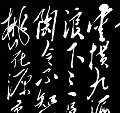 雲横九派
浪下三
陶令不知
桃花源